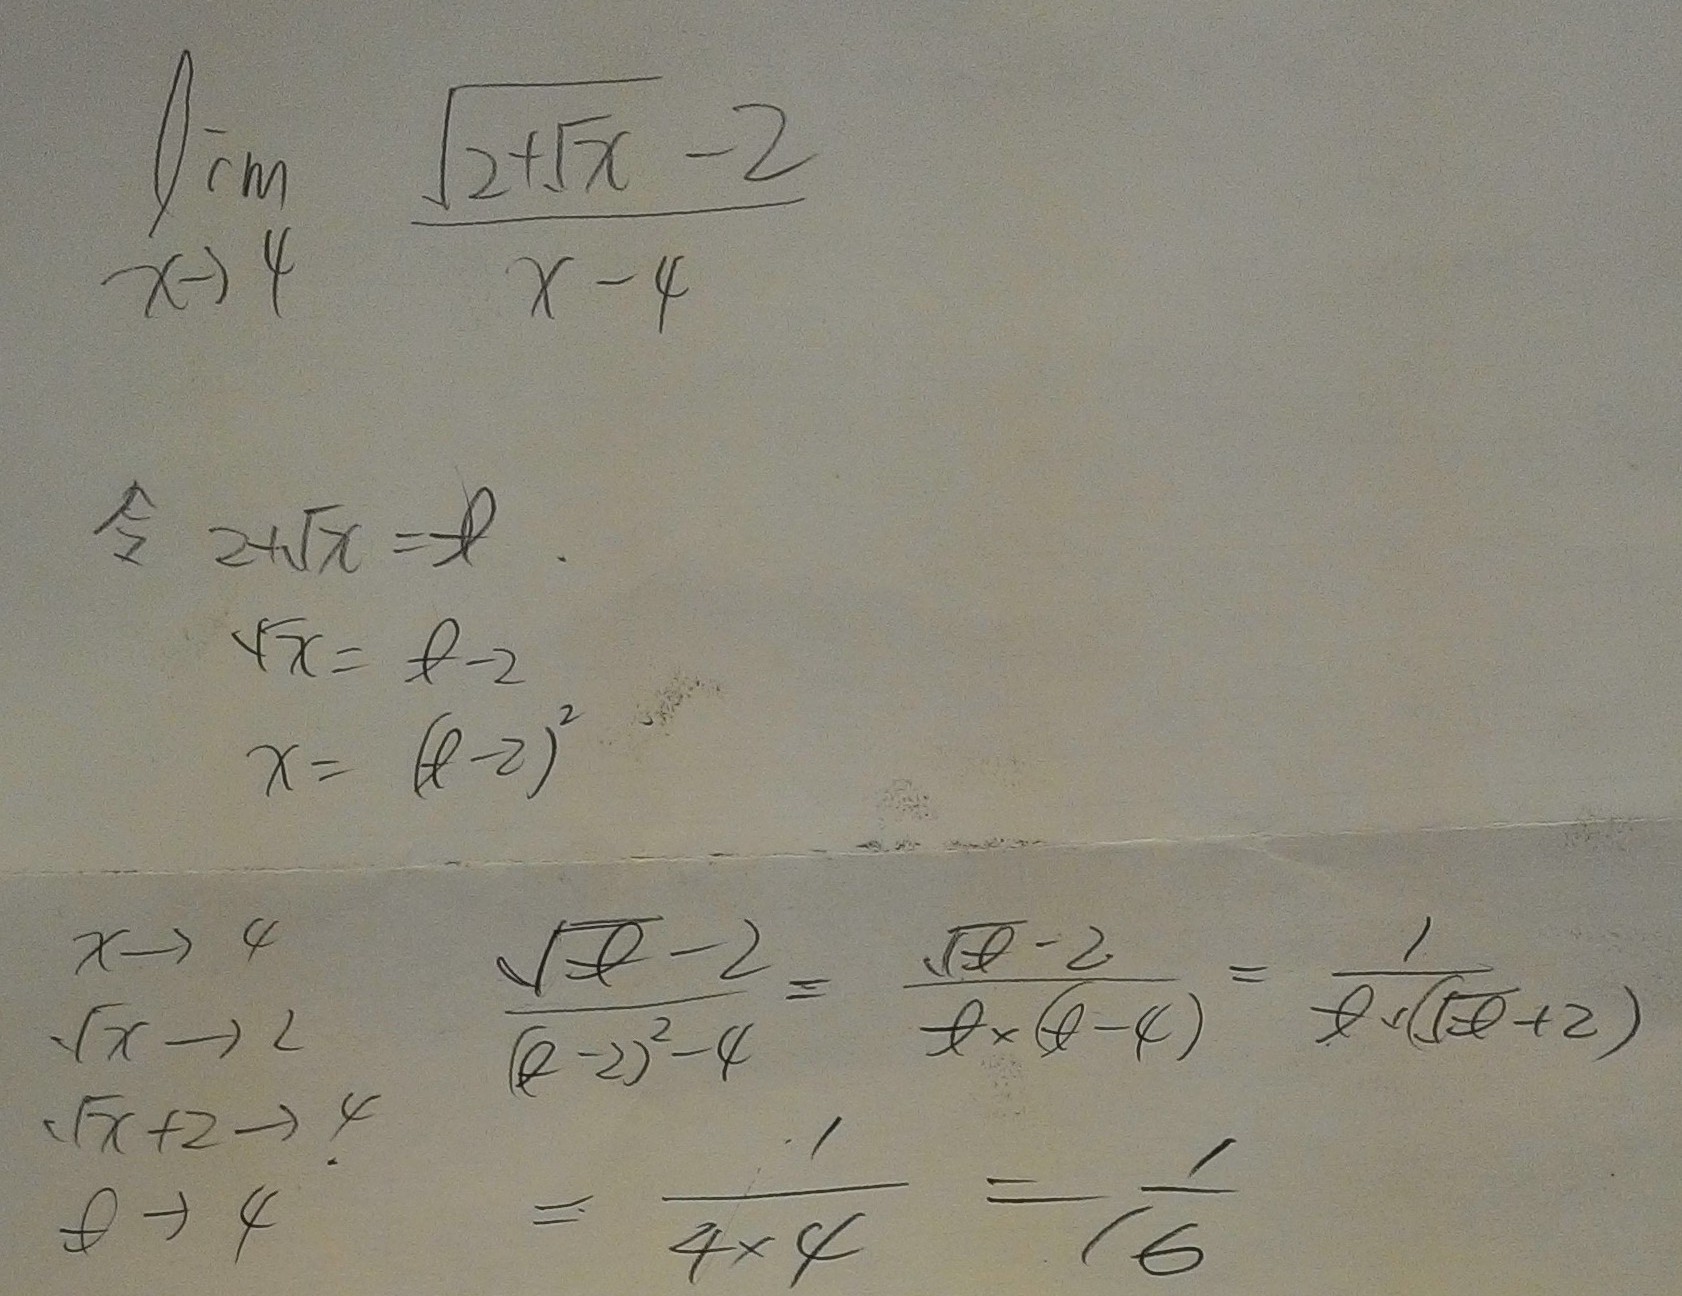 lim x→4 (√(2+√x) - 2)/(x - 4)
令 2+√x = t .
√x = t - 2
x = (t - 2)²
x → 4
√x → 2
√x + 2 → 4
t → 4
(√t - 2)/((t - 2)² - 4) = (√t - 2)/(t × (t - 4)) = 1/(t · (√t + 2))
= 1/(4 × 4) = 1/16